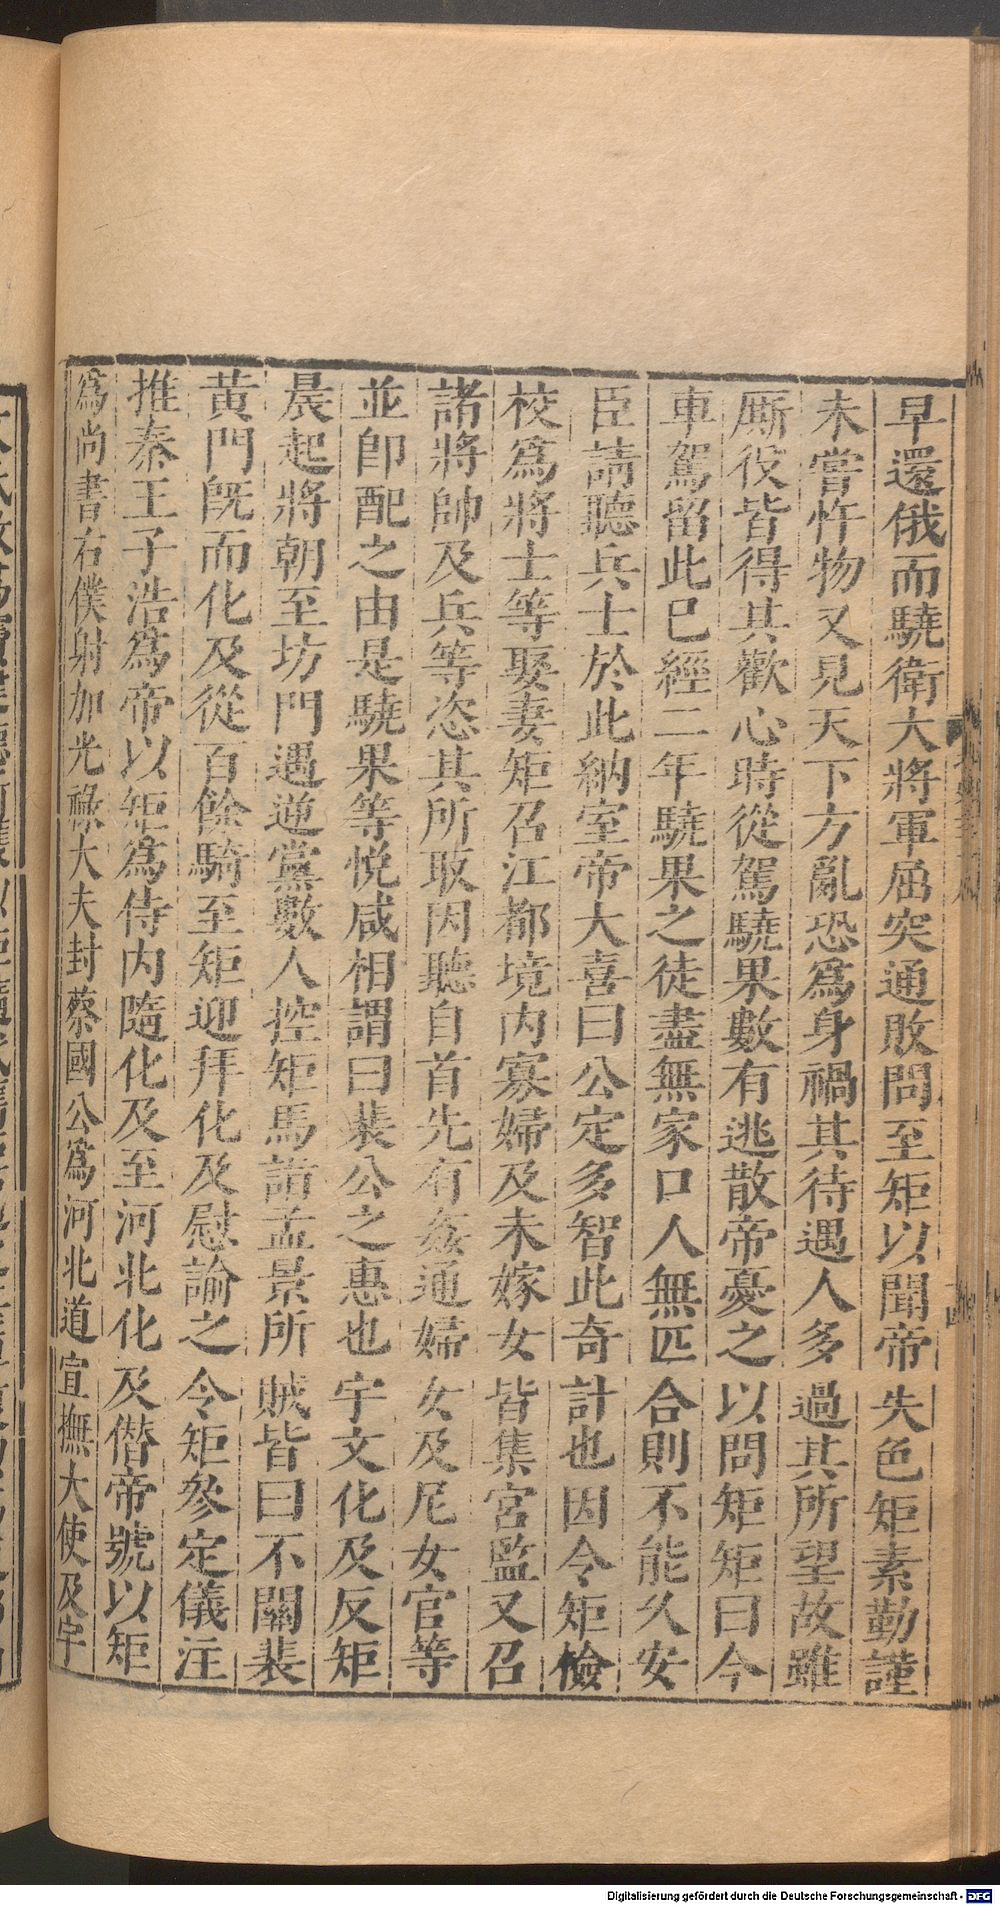 早還俄而驍衛大將軍屈突通敗問至矩以聞帝失色矩素勤謹
未嘗忤物又見天下方亂恐為身禍其待遇人多過其所望故雖
厮役皆得其歡心時從駕驍果數有逃散帝憂之以問矩矩曰今
車駕留此已經二年驍果之徒盡無家口人無匹合則不能久安
臣請聽兵士於此納室帝大喜曰公定多智此奇計也因令矩檢
校為將士等娶妻矩召江都境內寡婦及未嫁女皆集宮監又召
諸將帥及兵等恣其所取因聽自首先有姦通婦女及尼女官等
並即配之由是驍果等悅咸相謂曰裴公之惠也宇文化及反矩
晨起將朝至坊門遇逆黨數人控矩馬詣孟景所賊皆曰不關裴
黃門既而化及從百餘騎至矩迎拜化及慰諭之令矩參定儀注
推秦王子浩為帝以矩為侍內隨化及至河北化及僭帝號以矩
為尚書右僕射加光祿大夫封蔡國公為河北道宣撫大使及宇
Digitalisierung gefördert durch die Deutsche Forschungsgemeinschaft - DFG